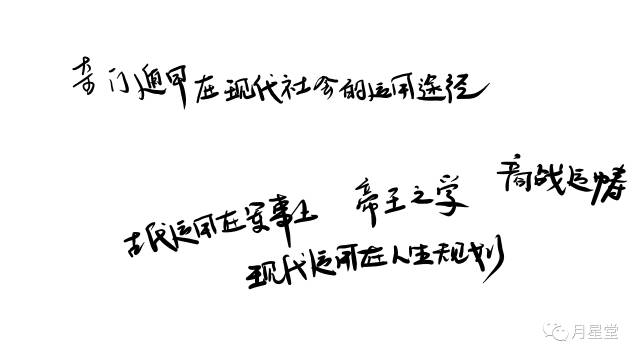 奇门遁甲在现代社会的运用途径
商战运筹
帝王之学
古代运用在军事上
现代运用在人生规划
月星堂